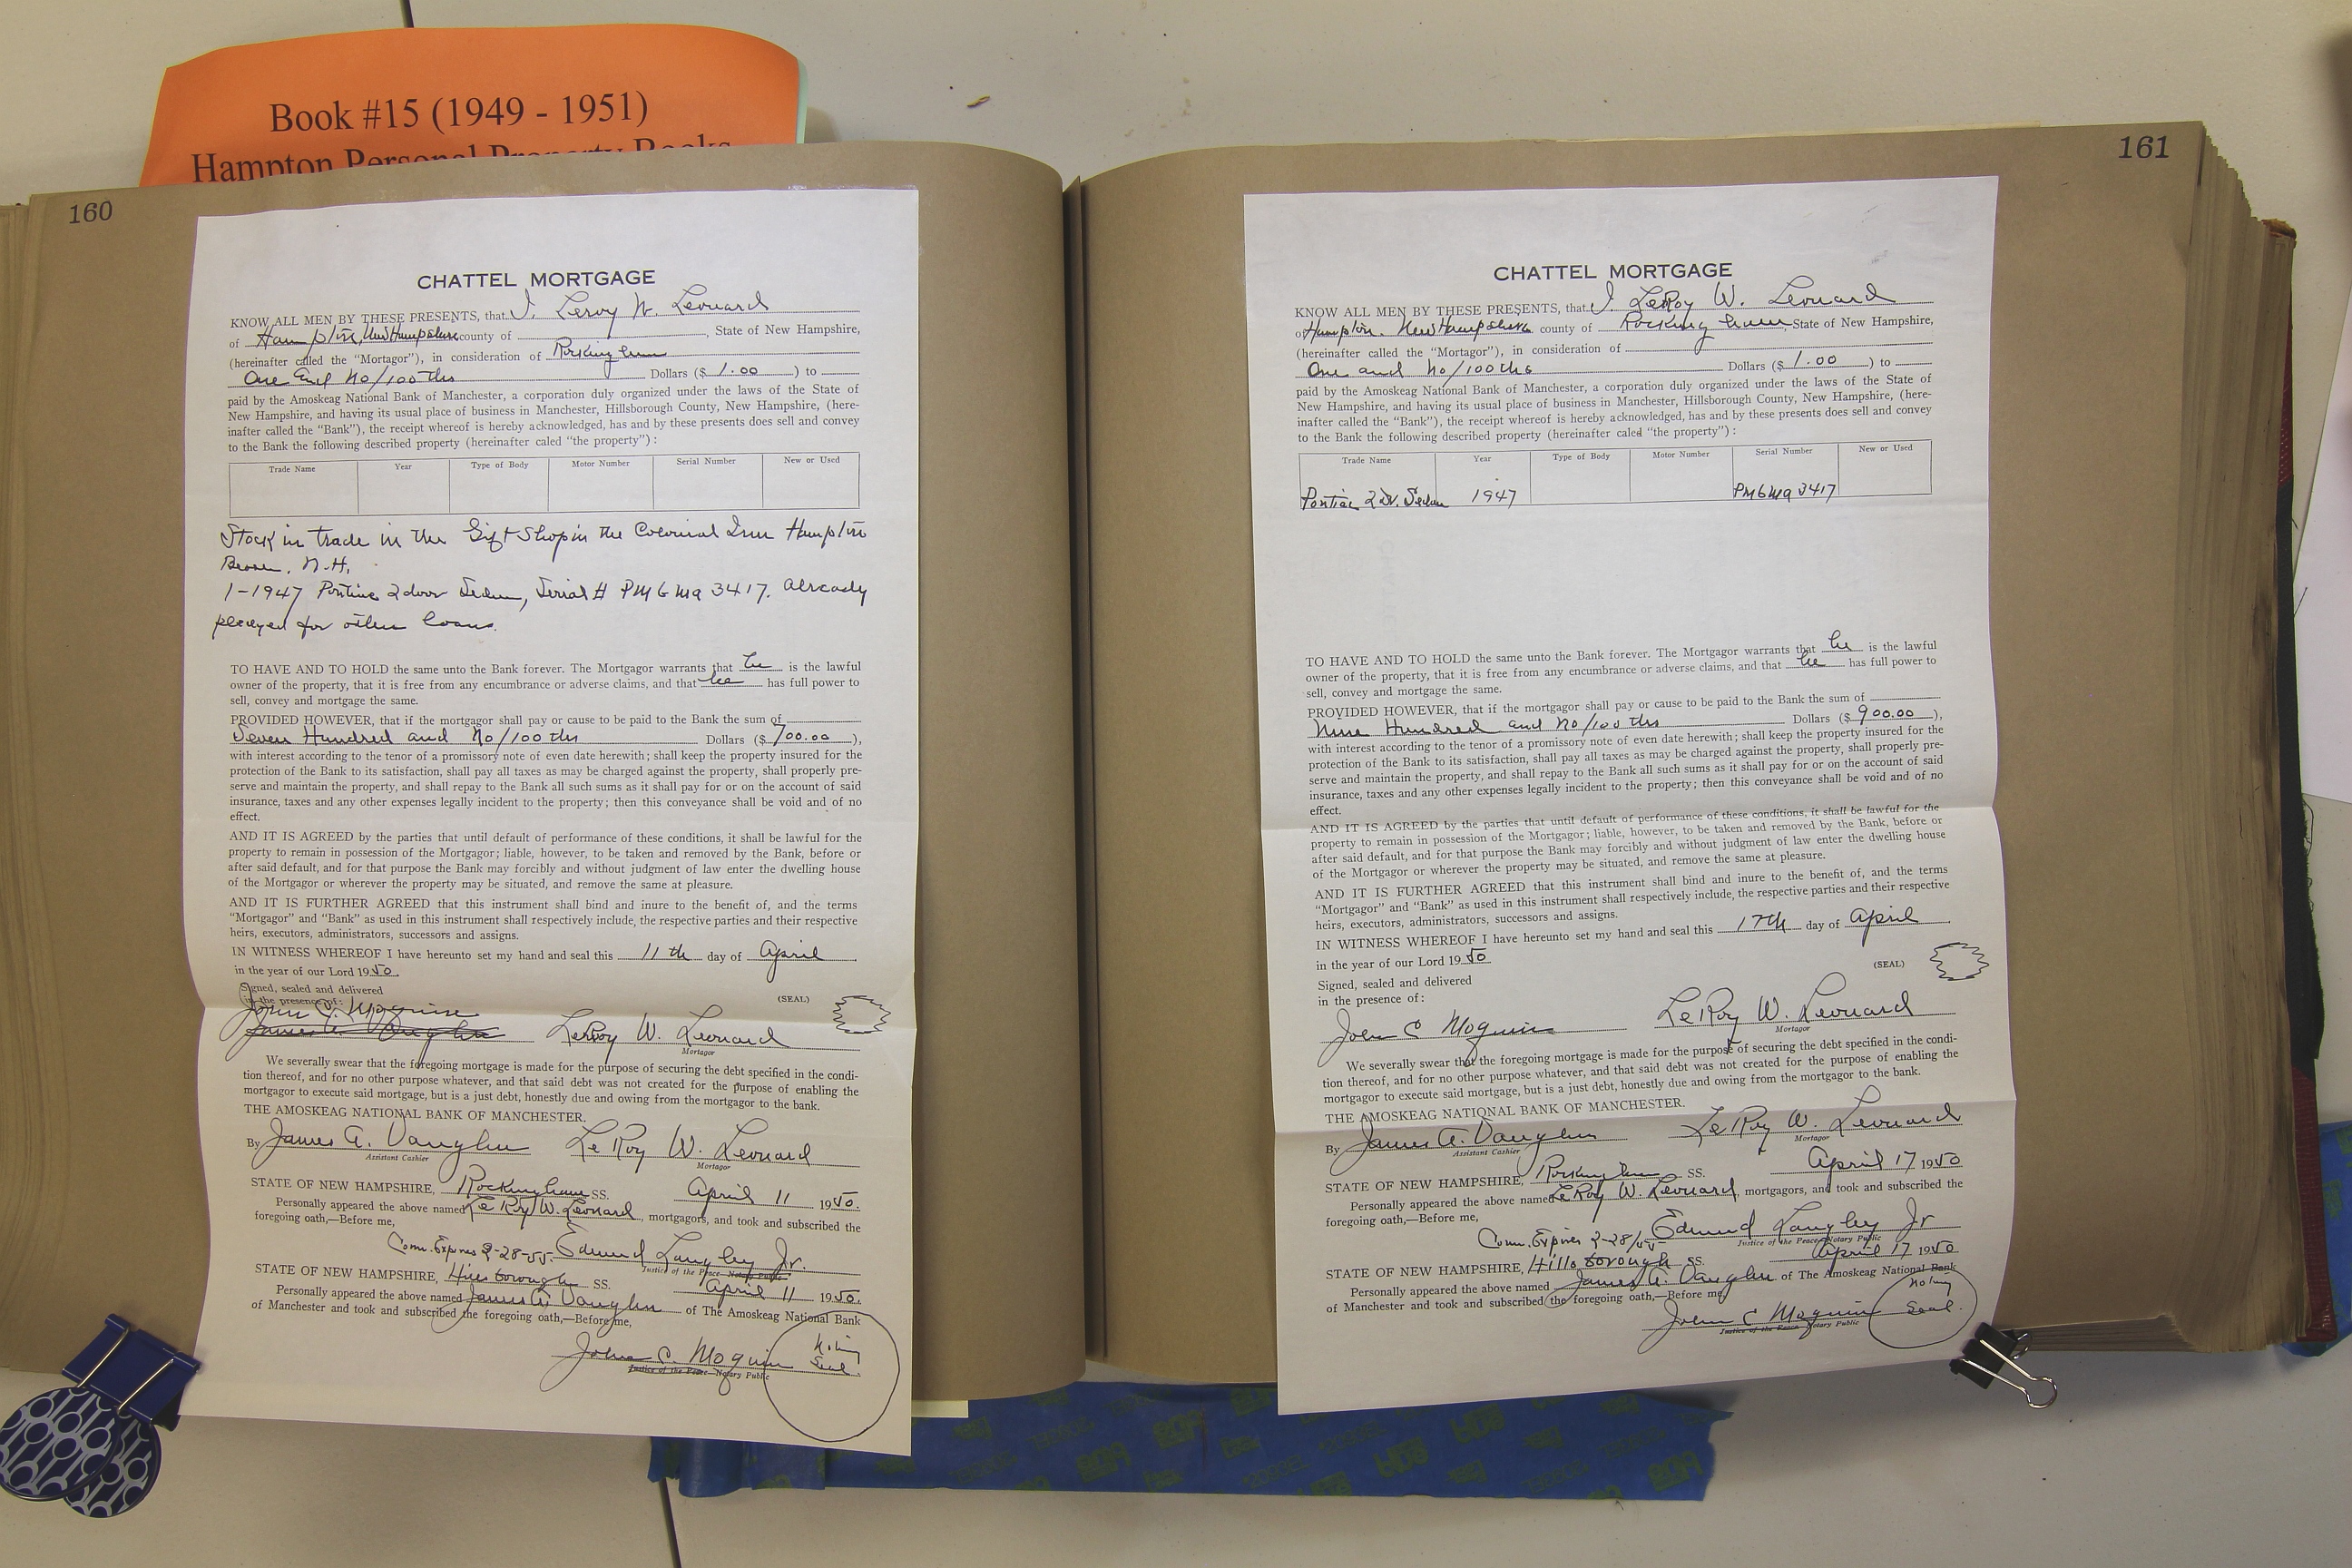 Book #15 (1949 - 1951)
Hampton Personal Property Books
160
CHATTEL MORTGAGE
KNOW ALL MEN BY THESE PRESENTS, that I, Leroy W. Leonard
of Hampton, New Hampshire county of , State of New Hampshire,
(hereinafter called the "Mortagor"), in consideration of Rockingham
One and No/100ths Dollars ($ 1.00 ) to
paid by the Amoskeag National Bank of Manchester, a corporation duly organized under the laws of the State of
New Hampshire, and having its usual place of business in Manchester, Hillsborough County, New Hampshire, (here-
inafter called the "Bank"), the receipt whereof is hereby acknowledged, has and by these presents does sell and convey
to the Bank the following described property (hereinafter caled "the property"):
Trade Name Year Type of Body Motor Number Serial Number New or Used
Stock in trade in the Gift Shop in the Colonial Inn Hampton
Beach, N.H.
1-1947 Pontiac 2 door Sedan, Serial # PM6MA 3417. Already
pledged for other loans.
TO HAVE AND TO HOLD the same unto the Bank forever. The Mortgagor warrants that he is the lawful
owner of the property, that it is free from any encumbrance or adverse claims, and that he has full power to
sell, convey and mortgage the same.
PROVIDED HOWEVER, that if the mortgagor shall pay or cause to be paid to the Bank the sum of
Seven Hundred and No/100ths Dollars ($ 700.00 ),
with interest according to the tenor of a promissory note of even date herewith; shall keep the property insured for the
protection of the Bank to its satisfaction, shall pay all taxes as may be charged against the property, shall properly pre-
serve and maintain the property, and shall repay to the Bank all such sums as it shall pay for or on the account of said
insurance, taxes and any other expenses legally incident to the property; then this conveyance shall be void and of no
effect.
AND IT IS AGREED by the parties that until default of performance of these conditions, it shall be lawful for the
property to remain in possession of the Mortgagor; liable, however, to be taken and removed by the Bank, before or
after said default, and for that purpose the Bank may forcibly and without judgment of law enter the dwelling house
of the Mortgagor or wherever the property may be situated, and remove the same at pleasure.
AND IT IS FURTHER AGREED that this instrument shall bind and inure to the benefit of, and the terms
"Mortgagor" and "Bank" as used in this instrument shall respectively include, the respective parties and their respective
heirs, executors, administrators, successors and assigns.
IN WITNESS WHEREOF I have hereunto set my hand and seal this 11th day of April
in the year of our Lord 1950.
Signed, sealed and delivered
in the presence of: (SEAL)
John C. Moquin
James A. Vaughn LeRoy W. Leonard
Mortagor
We severally swear that the foregoing mortgage is made for the purpose of securing the debt specified in the condi-
tion thereof, and for no other purpose whatever, and that said debt was not created for the purpose of enabling the
mortgagor to execute said mortgage, but is a just debt, honestly due and owing from the mortgagor to the bank.
THE AMOSKEAG NATIONAL BANK OF MANCHESTER.
By James A. Vaughn LeRoy W. Leonard
Assistant Cashier Mortagor
STATE OF NEW HAMPSHIRE, Rockingham SS. April 11 1950.
Personally appeared the above named LeRoy W. Leonard, mortgagors, and took and subscribed the
foregoing oath,—Before me,
Comm. Expires 2-28-55. Edmund Langley Jr.
Justice of the Peace—Notary Public
STATE OF NEW HAMPSHIRE, Hillsborough SS. April 11 1950.
Personally appeared the above named James A. Vaughn of The Amoskeag National Bank
of Manchester and took and subscribed the foregoing oath,—Before me,
John C. Moquin
Justice of the Peace—Notary Public
Seal.
161
CHATTEL MORTGAGE
KNOW ALL MEN BY THESE PRESENTS, that I, LeRoy W. Leonard
of Hampton, New Hampshire county of Rockingham, State of New Hampshire,
(hereinafter called the "Mortagor"), in consideration of
One and No/100ths Dollars ($ 1.00 ) to
paid by the Amoskeag National Bank of Manchester, a corporation duly organized under the laws of the State of
New Hampshire, and having its usual place of business in Manchester, Hillsborough County, New Hampshire, (here-
inafter called the "Bank"), the receipt whereof is hereby acknowledged, has and by these presents does sell and convey
to the Bank the following described property (hereinafter caled "the property"):
Trade Name Year Type of Body Motor Number Serial Number New or Used
Pontiac 2 Dr. Sedan 1947 PM6MA 3417
TO HAVE AND TO HOLD the same unto the Bank forever. The Mortgagor warrants that he is the lawful
owner of the property, that it is free from any encumbrance or adverse claims, and that he has full power to
sell, convey and mortgage the same.
PROVIDED HOWEVER, that if the mortgagor shall pay or cause to be paid to the Bank the sum of
Nine Hundred and No/100ths Dollars ($ 900.00 ),
with interest according to the tenor of a promissory note of even date herewith; shall keep the property insured for the
protection of the Bank to its satisfaction, shall pay all taxes as may be charged against the property, shall properly pre-
serve and maintain the property, and shall repay to the Bank all such sums as it shall pay for or on the account of said
insurance, taxes and any other expenses legally incident to the property; then this conveyance shall be void and of no
effect.
AND IT IS AGREED by the parties that until default of performance of these conditions, it shall be lawful for the
property to remain in possession of the Mortgagor; liable, however, to be taken and removed by the Bank, before or
after said default, and for that purpose the Bank may forcibly and without judgment of law enter the dwelling house
of the Mortgagor or wherever the property may be situated, and remove the same at pleasure.
AND IT IS FURTHER AGREED that this instrument shall bind and inure to the benefit of, and the terms
"Mortgagor" and "Bank" as used in this instrument shall respectively include, the respective parties and their respective
heirs, executors, administrators, successors and assigns.
IN WITNESS WHEREOF I have hereunto set my hand and seal this 17th day of April
in the year of our Lord 1950
Signed, sealed and delivered (SEAL)
in the presence of:
John C Moquin LeRoy W. Leonard
Mortagor
We severally swear that the foregoing mortgage is made for the purpose of securing the debt specified in the condi-
tion thereof, and for no other purpose whatever, and that said debt was not created for the purpose of enabling the
mortgagor to execute said mortgage, but is a just debt, honestly due and owing from the mortgagor to the bank.
THE AMOSKEAG NATIONAL BANK OF MANCHESTER.
By James A. Vaughn LeRoy W. Leonard
Assistant Cashier Mortagor
STATE OF NEW HAMPSHIRE, Rockingham SS. April 17 1950
Personally appeared the above named LeRoy W. Leonard, mortgagors, and took and subscribed the
foregoing oath,—Before me,
Comm. Expires 2-28/55 Edmund Langley Jr
Justice of the Peace—Notary Public
STATE OF NEW HAMPSHIRE, Hillsborough SS. April 17 1950
Personally appeared the above named James A. Vaughn of The Amoskeag National Bank
of Manchester and took and subscribed the foregoing oath,—Before me,
John C Moquin
Justice of the Peace—Notary Public
Seal.